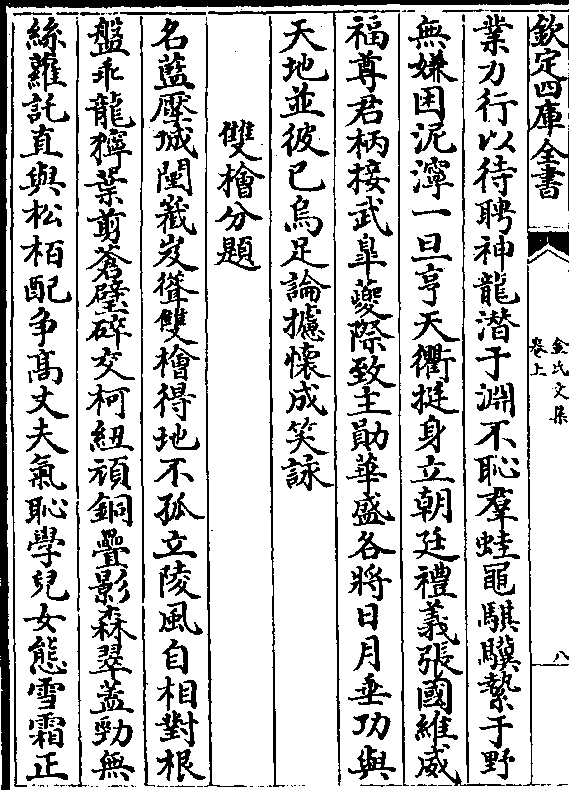 欽定四庫全書
金氏文集
卷上
八
業力行以待聘神龍潛于淵不恥羣蛙黽騏驥縶于野
無嫌困泥濘一旦亨天衢挺身立朝廷禮義張國維威
福尊君柄接武臯夔際致主勛華盛各將日月垂功與
天地並彼已烏足論攄懷成笑詠
雙檜分題
名藍壓城闉嶻岌聳雙檜得地不孤立陵風自相對根
盤乖龍獰葉剪蒼璧碎交柯紐頑銅疊影森翠蓋勁無
絲蘿託直與松栢配爭髙丈夫氣恥學兒女態雪霜正